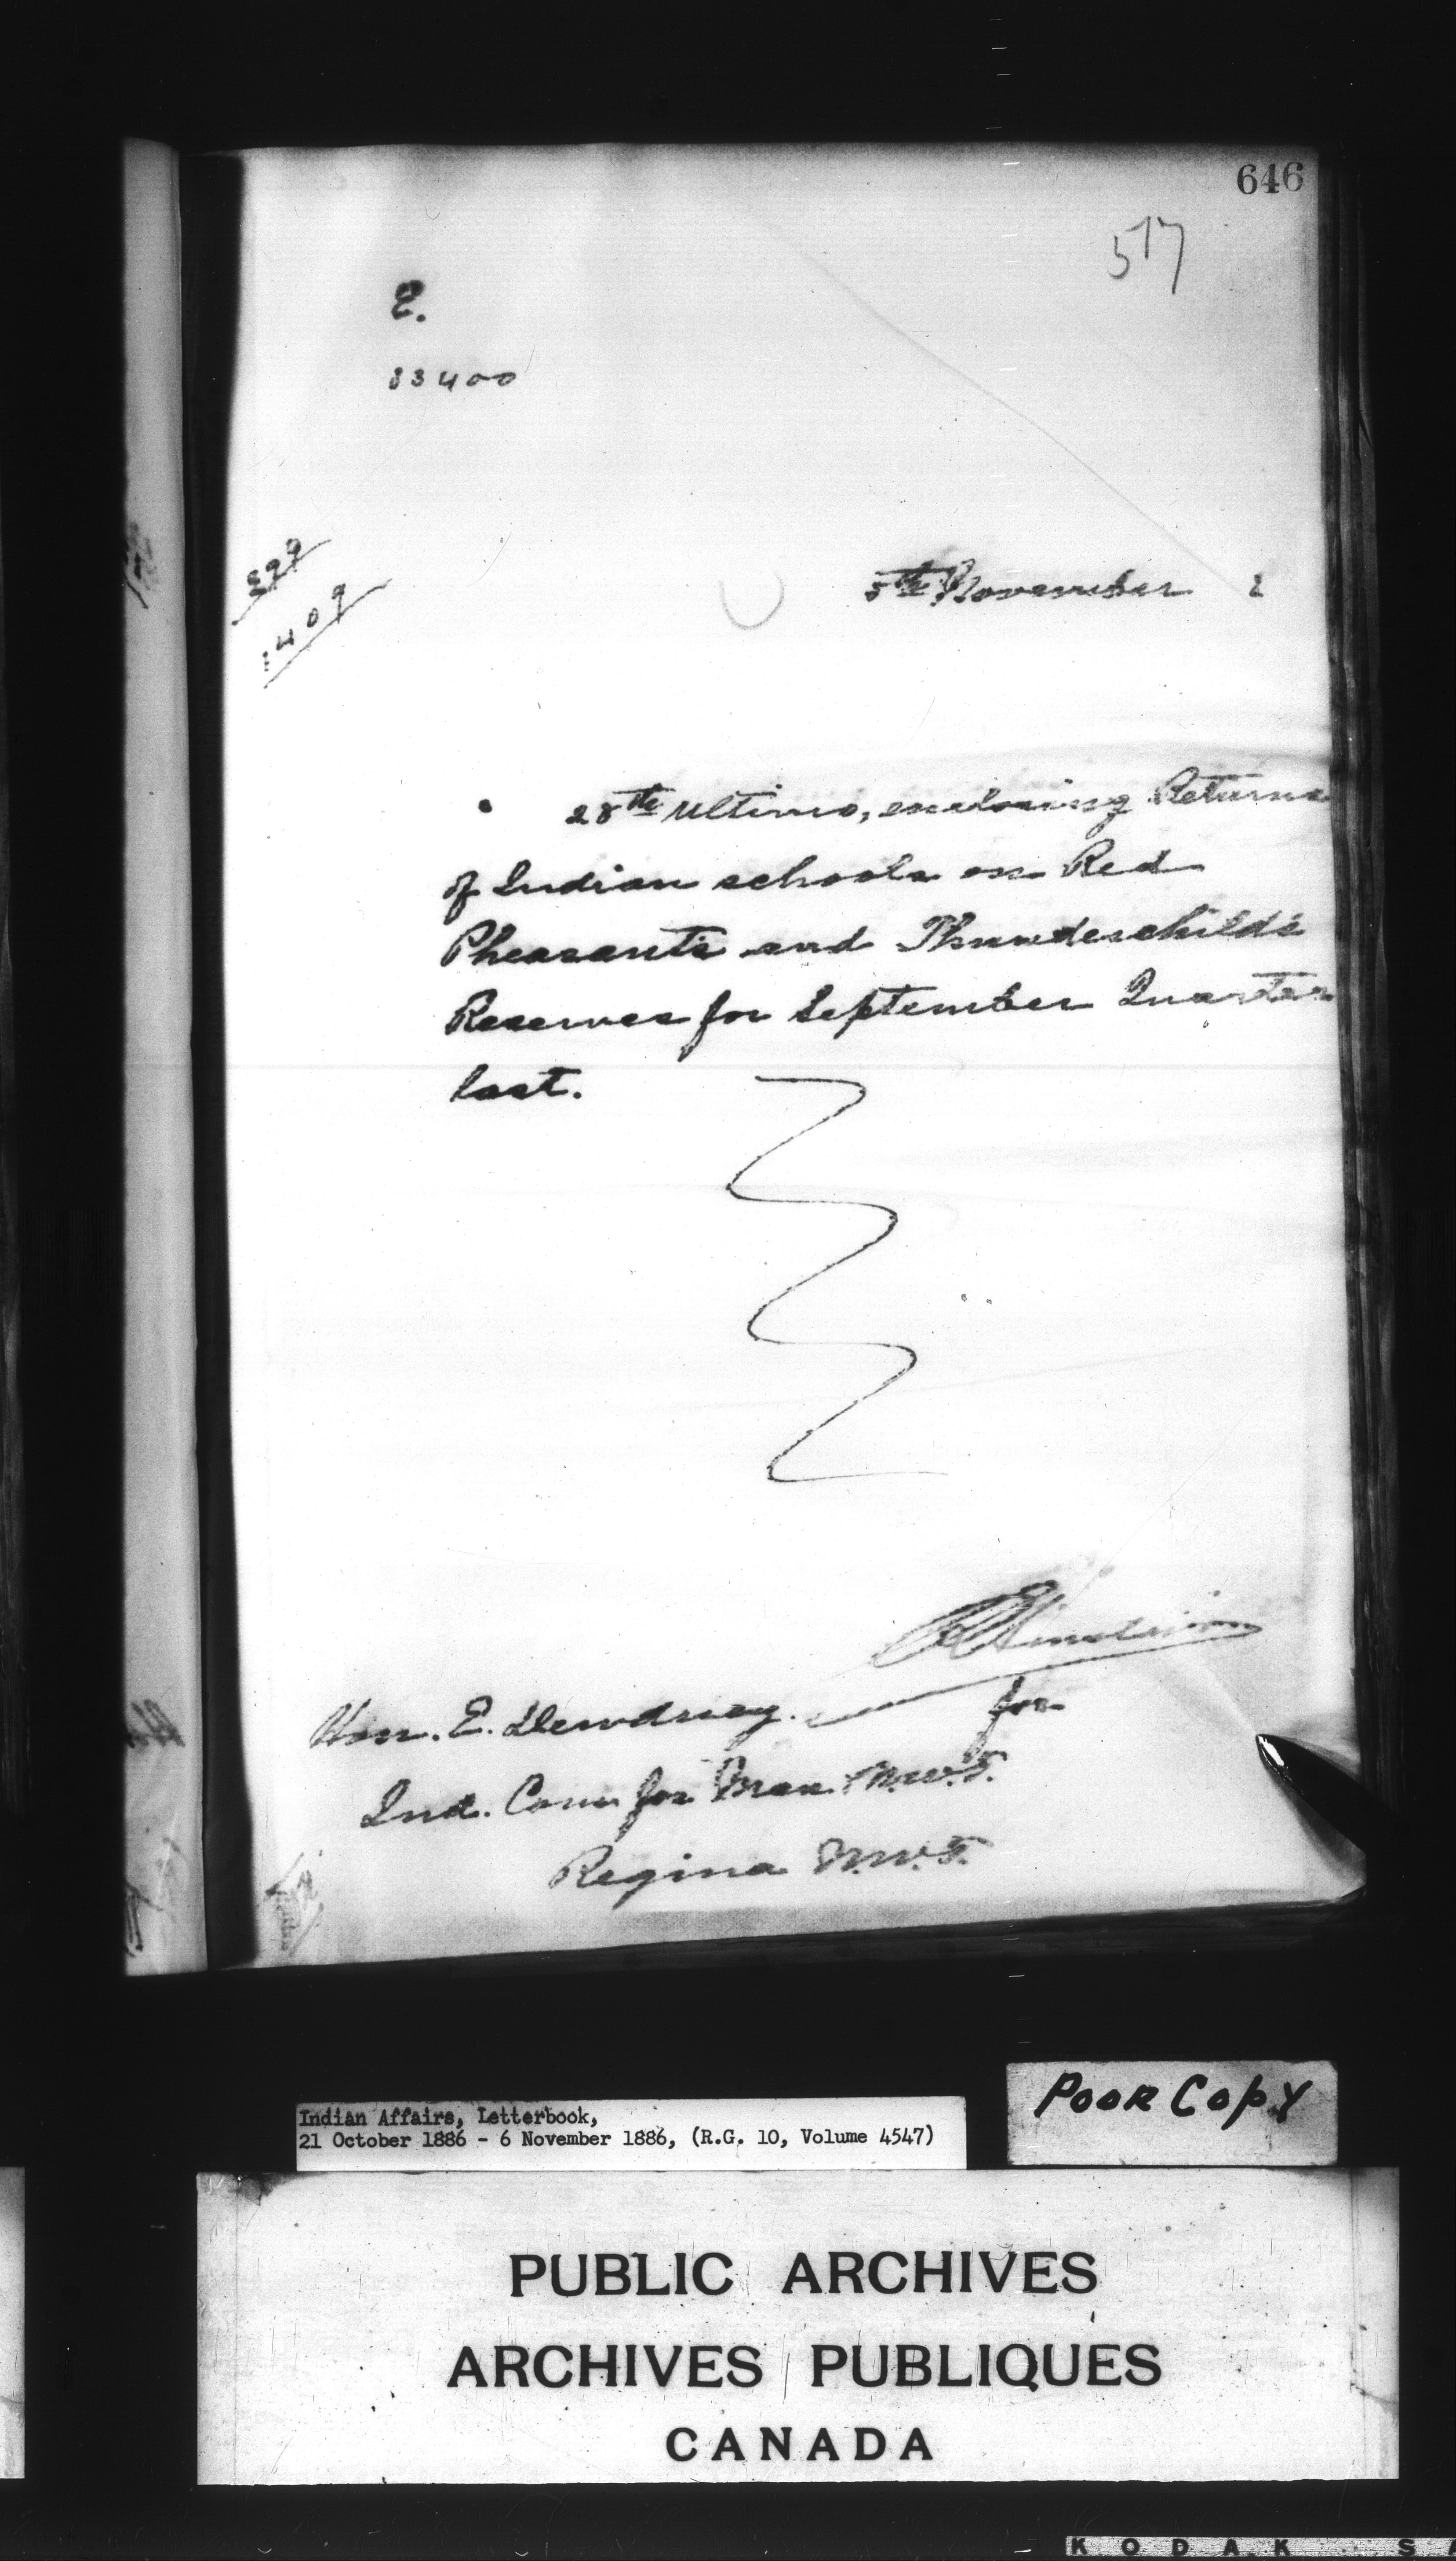 646
517
E.
33400
399
1409
5th November
28th Ultimo, enclosing Returns
of Indian schools on Red
Pheasant's and Thunderchild's
Reserves for September Quarter
last.
for
Hon. E. Dewdney.
Ind. Com for Man. N.W.T.
Regina N.W.T.
Poor Copy
Indian Affairs, Letterbook,
21 October 1886 - 6 November 1886, (R.G. 10, Volume 4547)
PUBLIC ARCHIVES
ARCHIVES PUBLIQUES
CANADA
KODAK SA